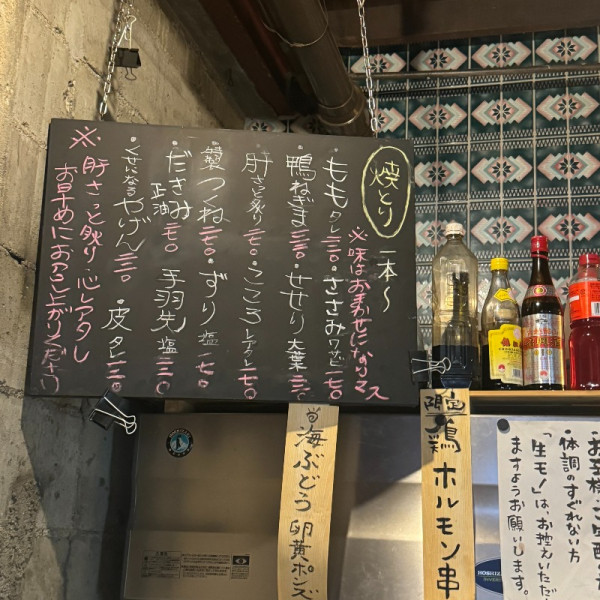 焼とり 一本〜
※味はおまかせになりマス
もも タレ 二三〇 ・ささみ ワサビ 一七〇
鴨ねぎま 三三〇 ・せせり 大葉 二三〇
肝 さっと炙り 一七〇 ・こころ レアタレ 一七〇
特製 つくね 二七〇 ・ずり 塩 一七〇
だきみ 正油 一七〇 手羽先 塩 二三〇
・くせになる やげん 二二〇 ・皮 タレ 一三〇
※肝さっと炙り・心レアタレ
お早めにお召し上がりください
海ぶどう 卵黄ポンズ
鶏ホルモン串
・体調のすぐれない方
「生モノ」は、お控えいただ
ますようお願いします。